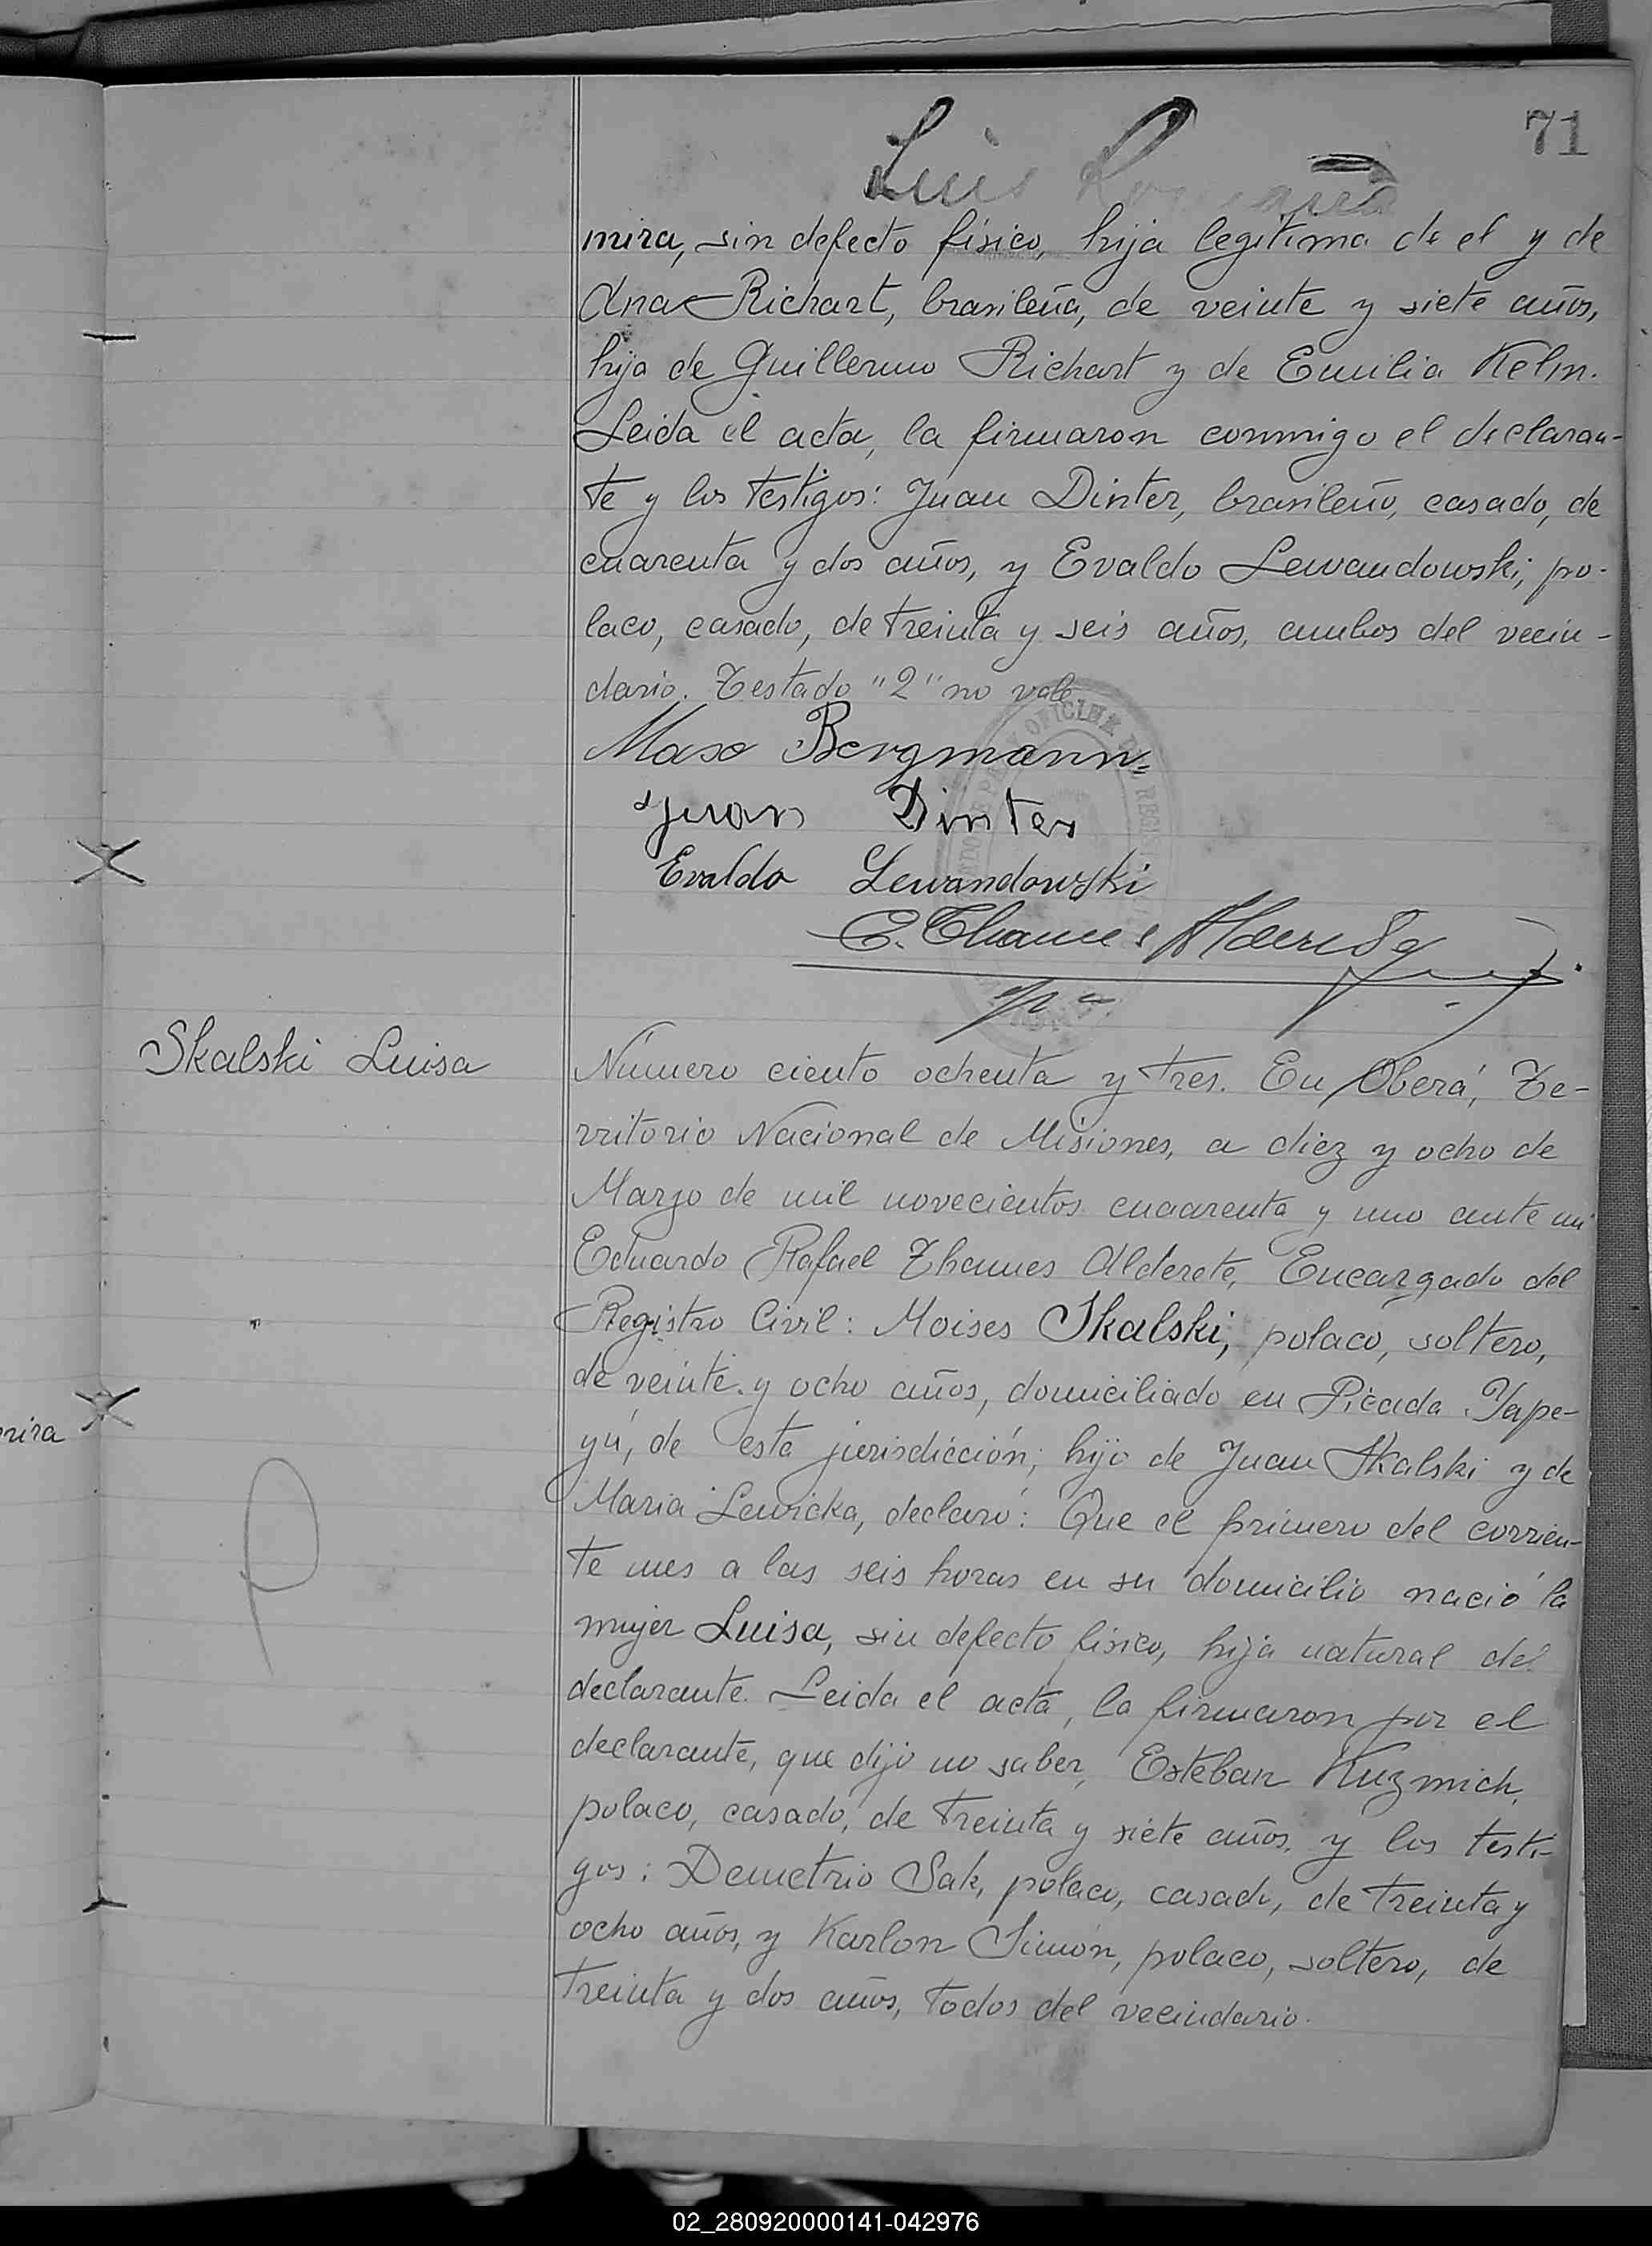 71
Luis
mira, sin defecto físico, hija legitima de el y de
Ana Richart, brasileña, de veinte y siete años,
hija de Guillermo Richart y de Emilia Kelm.
Leida el acta, la firmaron conmigo el declaran-
te y los testigos: Juan Dinter, brasileño, casado, de
cuarenta y dos años, y Evaldo Lewandowski, po-
laco, casado, de treinta y seis años, ambos del vecin-
dario. Testado "2" no vale
Max Bergmann
Juan Dinter
Evaldo Lewandowski
E. Thames Alderete
Skalski Luisa
Número ciento ochenta y tres. En Oberá, Te-
rritorio Nacional de Misiones, a diez y ocho de
Marzo de mil novecientos cuaarenta y uno ante mi
Eduardo Rafael Thames Alderete, Encargado del
Registro Civil: Moises Skalski, polaco, soltero,
de veinte y ocho años, domiciliado en Picada Yape-
yú, de esta jurisdicción, hijo de Juan Skalski y de
Maria Lewicka, declaró: Que el primero del corrien-
te mes a las seis horas en su domicilio nació la
mujer Luisa, sin defecto físico, hija natural del
declarante. Leida el acta, la firmaron por el
declarante, que dijo no saber, Esteban Kuzmich,
polaco, casado, de treinta y siete años, y los testi-
gos: Demetrio Sak, polaco, casado, de treinta y
ocho años, y Karlon Simón, polaco, soltero, de
treinta y dos años, todos del vecindario.
mira
02_280920000141-042976